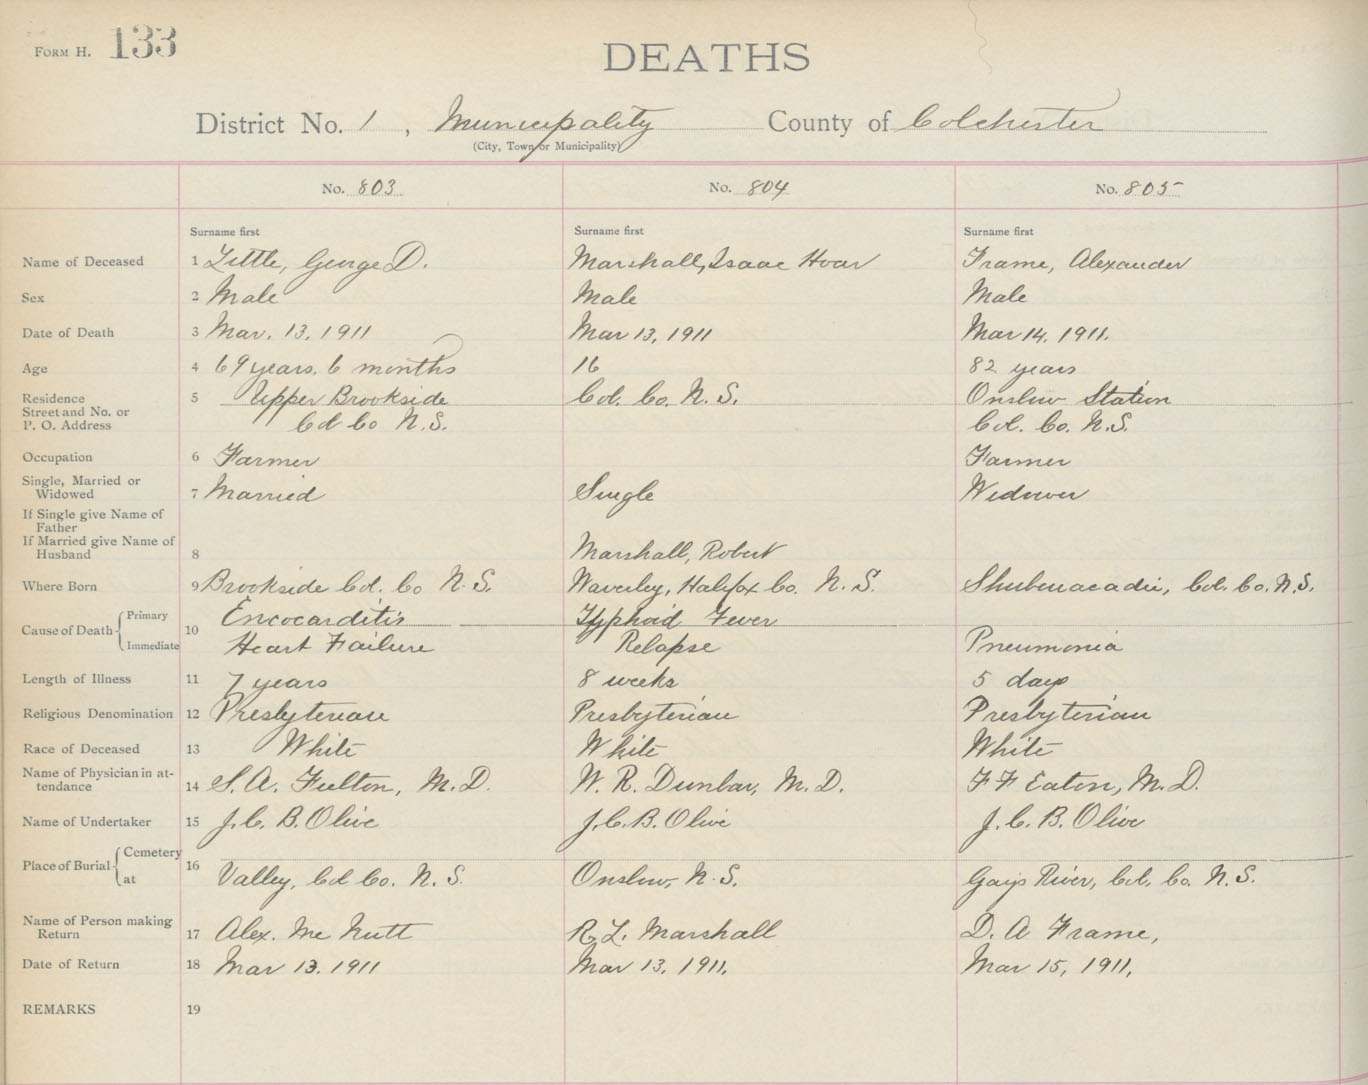 FORM H. 133
DEATHS
District No. 1, Municipality County of Colchester
(City, Town or Municipality)
No. 803 No. 804 No. 805
Surname first Surname first Surname first
Name of Deceased 1 Little, George D. Marshall, Isaac Hoar Frame, Alexander
Sex 2 Male Male Male
Date of Death 3 Mar. 13, 1911 Mar 13, 1911 Mar 14, 1911.
Age 4 69 years, 6 months 16 82 years
Residence 5 Upper Brookside Col. Co. N.S. Onslow Station
Street and No. or
P. O. Address Col Co N.S. Col. Co. N.S.
Occupation 6 Farmer Farmer
Single, Married or
Widowed 7 Married Single Widower
If Single give Name of
Father
If Married give Name of
Husband 8 Marshall, Robert
Where Born 9 Brookside Col. Co N.S. Waverley, Halifax Co. N.S. Shubenacadie, Col. Co. N.S.
Primary Encocarditis Typhoid Fever
Cause of Death 10
Immediate Heart Failure Relapse Pneumonia
Length of Illness 11 7 years 8 weeks 5 days
Religious Denomination 12 Presbyterian Presbyterian Presbyterian
Race of Deceased 13 White White White
Name of Physician in at-
tendance 14 S. A. Fulton, M.D. W. R. Dunbar, M.D. F F Eaton, M.D.
Name of Undertaker 15 J. C. B. Olive J. C. B. Olive J. C. B. Olive
Cemetery
Place of Burial 16
at Valley, Col Co. N.S. Onslow, N.S. Gays River, Col. Co. N.S.
Name of Person making
Return 17 Alex. Mc Nutt R. L. Marshall D. A Frame,
Date of Return 18 Mar 13. 1911 Mar 13, 1911. Mar 15, 1911.
REMARKS 19